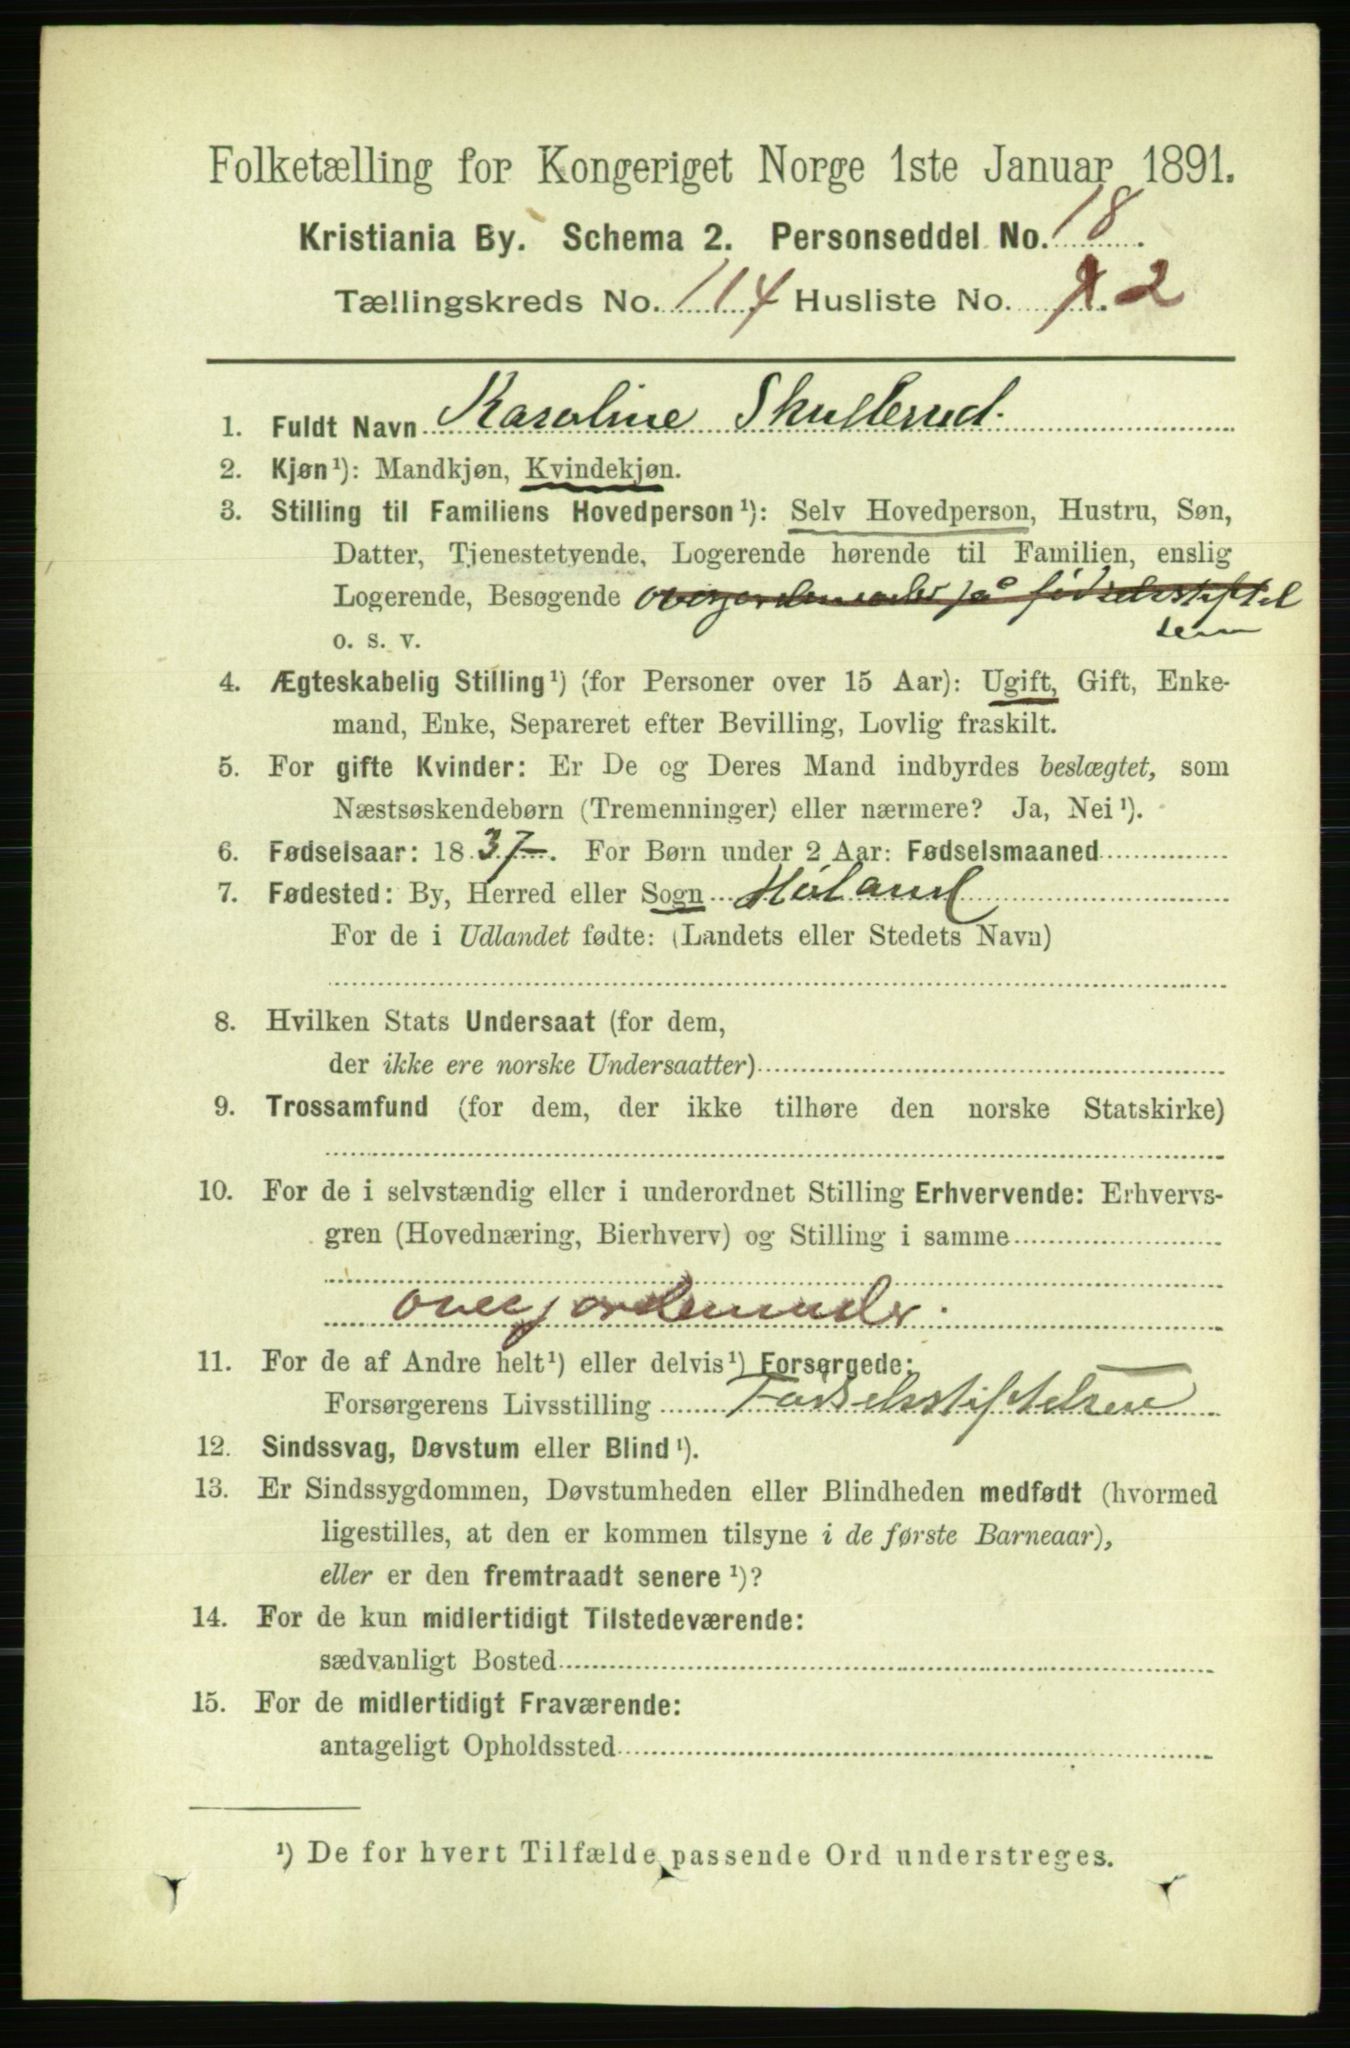 Folketælling for Kongeriget Norge 1ste Januar 1891.
Kristiania By. Schema 2. Personseddel No. 18.
Tællingskreds No. 114 Husliste No. 1. 2
1. Fuldt Navn Karoline Skullerud.
2. Kjøn¹): Mandkjøn, Kvindekjøn.
3. Stilling til Familiens Hovedperson¹): Selv Hovedperson, Hustru, Søn,
Datter, Tjenestetyende, Logerende hørende til Familien, enslig
Logerende, Besøgende overjordemoder på fødselsstiftel
sen
o. s. v.
4. Ægteskabelig Stilling¹) (for Personer over 15 Aar): Ugift, Gift, Enke-
mand, Enke, Separeret efter Bevilling, Lovlig fraskilt.
5. For gifte Kvinder: Er De og Deres Mand indbyrdes beslægtet, som
Næstsøskendebørn (Tremenninger) eller nærmere? Ja, Nei¹).
6. Fødselsaar: 1837. For Børn under 2 Aar: Fødselsmaaned
7. Fødested: By, Herred eller Sogn Høland
For de i Udlandet fødte: (Landets eller Stedets Navn)
8. Hvilken Stats Undersaat (for dem,
der ikke ere norske Undersaatter)
9. Trossamfund (for dem, der ikke tilhøre den norske Statskirke)
10. For de i selvstændig eller i underordnet Stilling Erhvervende: Erhvervs-
gren (Hovednæring, Bierhverv) og Stilling i samme
overjordemoder.
11. For de af Andre helt¹) eller delvis¹) Forsørgede:
Forsørgerens Livsstilling Fødselsstiftelsen
12. Sindssvag, Døvstum eller Blind¹).
13. Er Sindssygdommen, Døvstumheden eller Blindheden medfødt (hvormed
ligestilles, at den er kommen tilsyne i de første Barneaar),
eller er den fremtraadt senere¹)?
14. For de kun midlertidigt Tilstedeværende:
sædvanligt Bosted
15. For de midlertidigt Fraværende:
antageligt Opholdssted
¹) De for hvert Tilfælde passende Ord understreges.